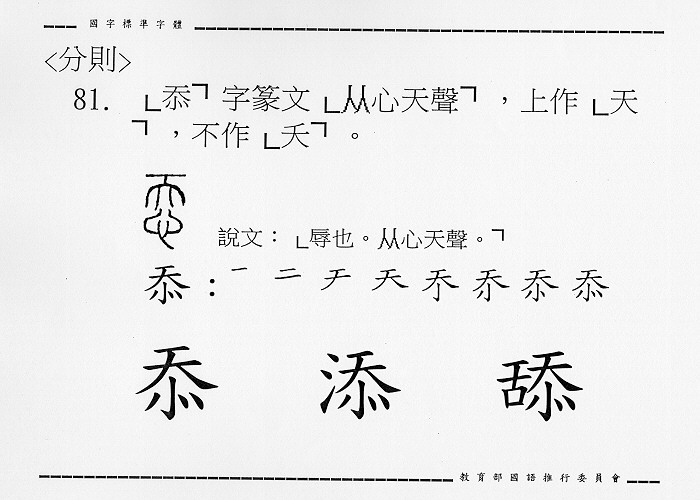 國字標準字體
<分則>
81. 「忝」字篆文「从心天聲」，上作「天
」，不作「夭」。
說文：「辱也。从心天聲。」
忝：一 二 チ 天 忝 忝
忝 添 舔
教育部國語推行委員會